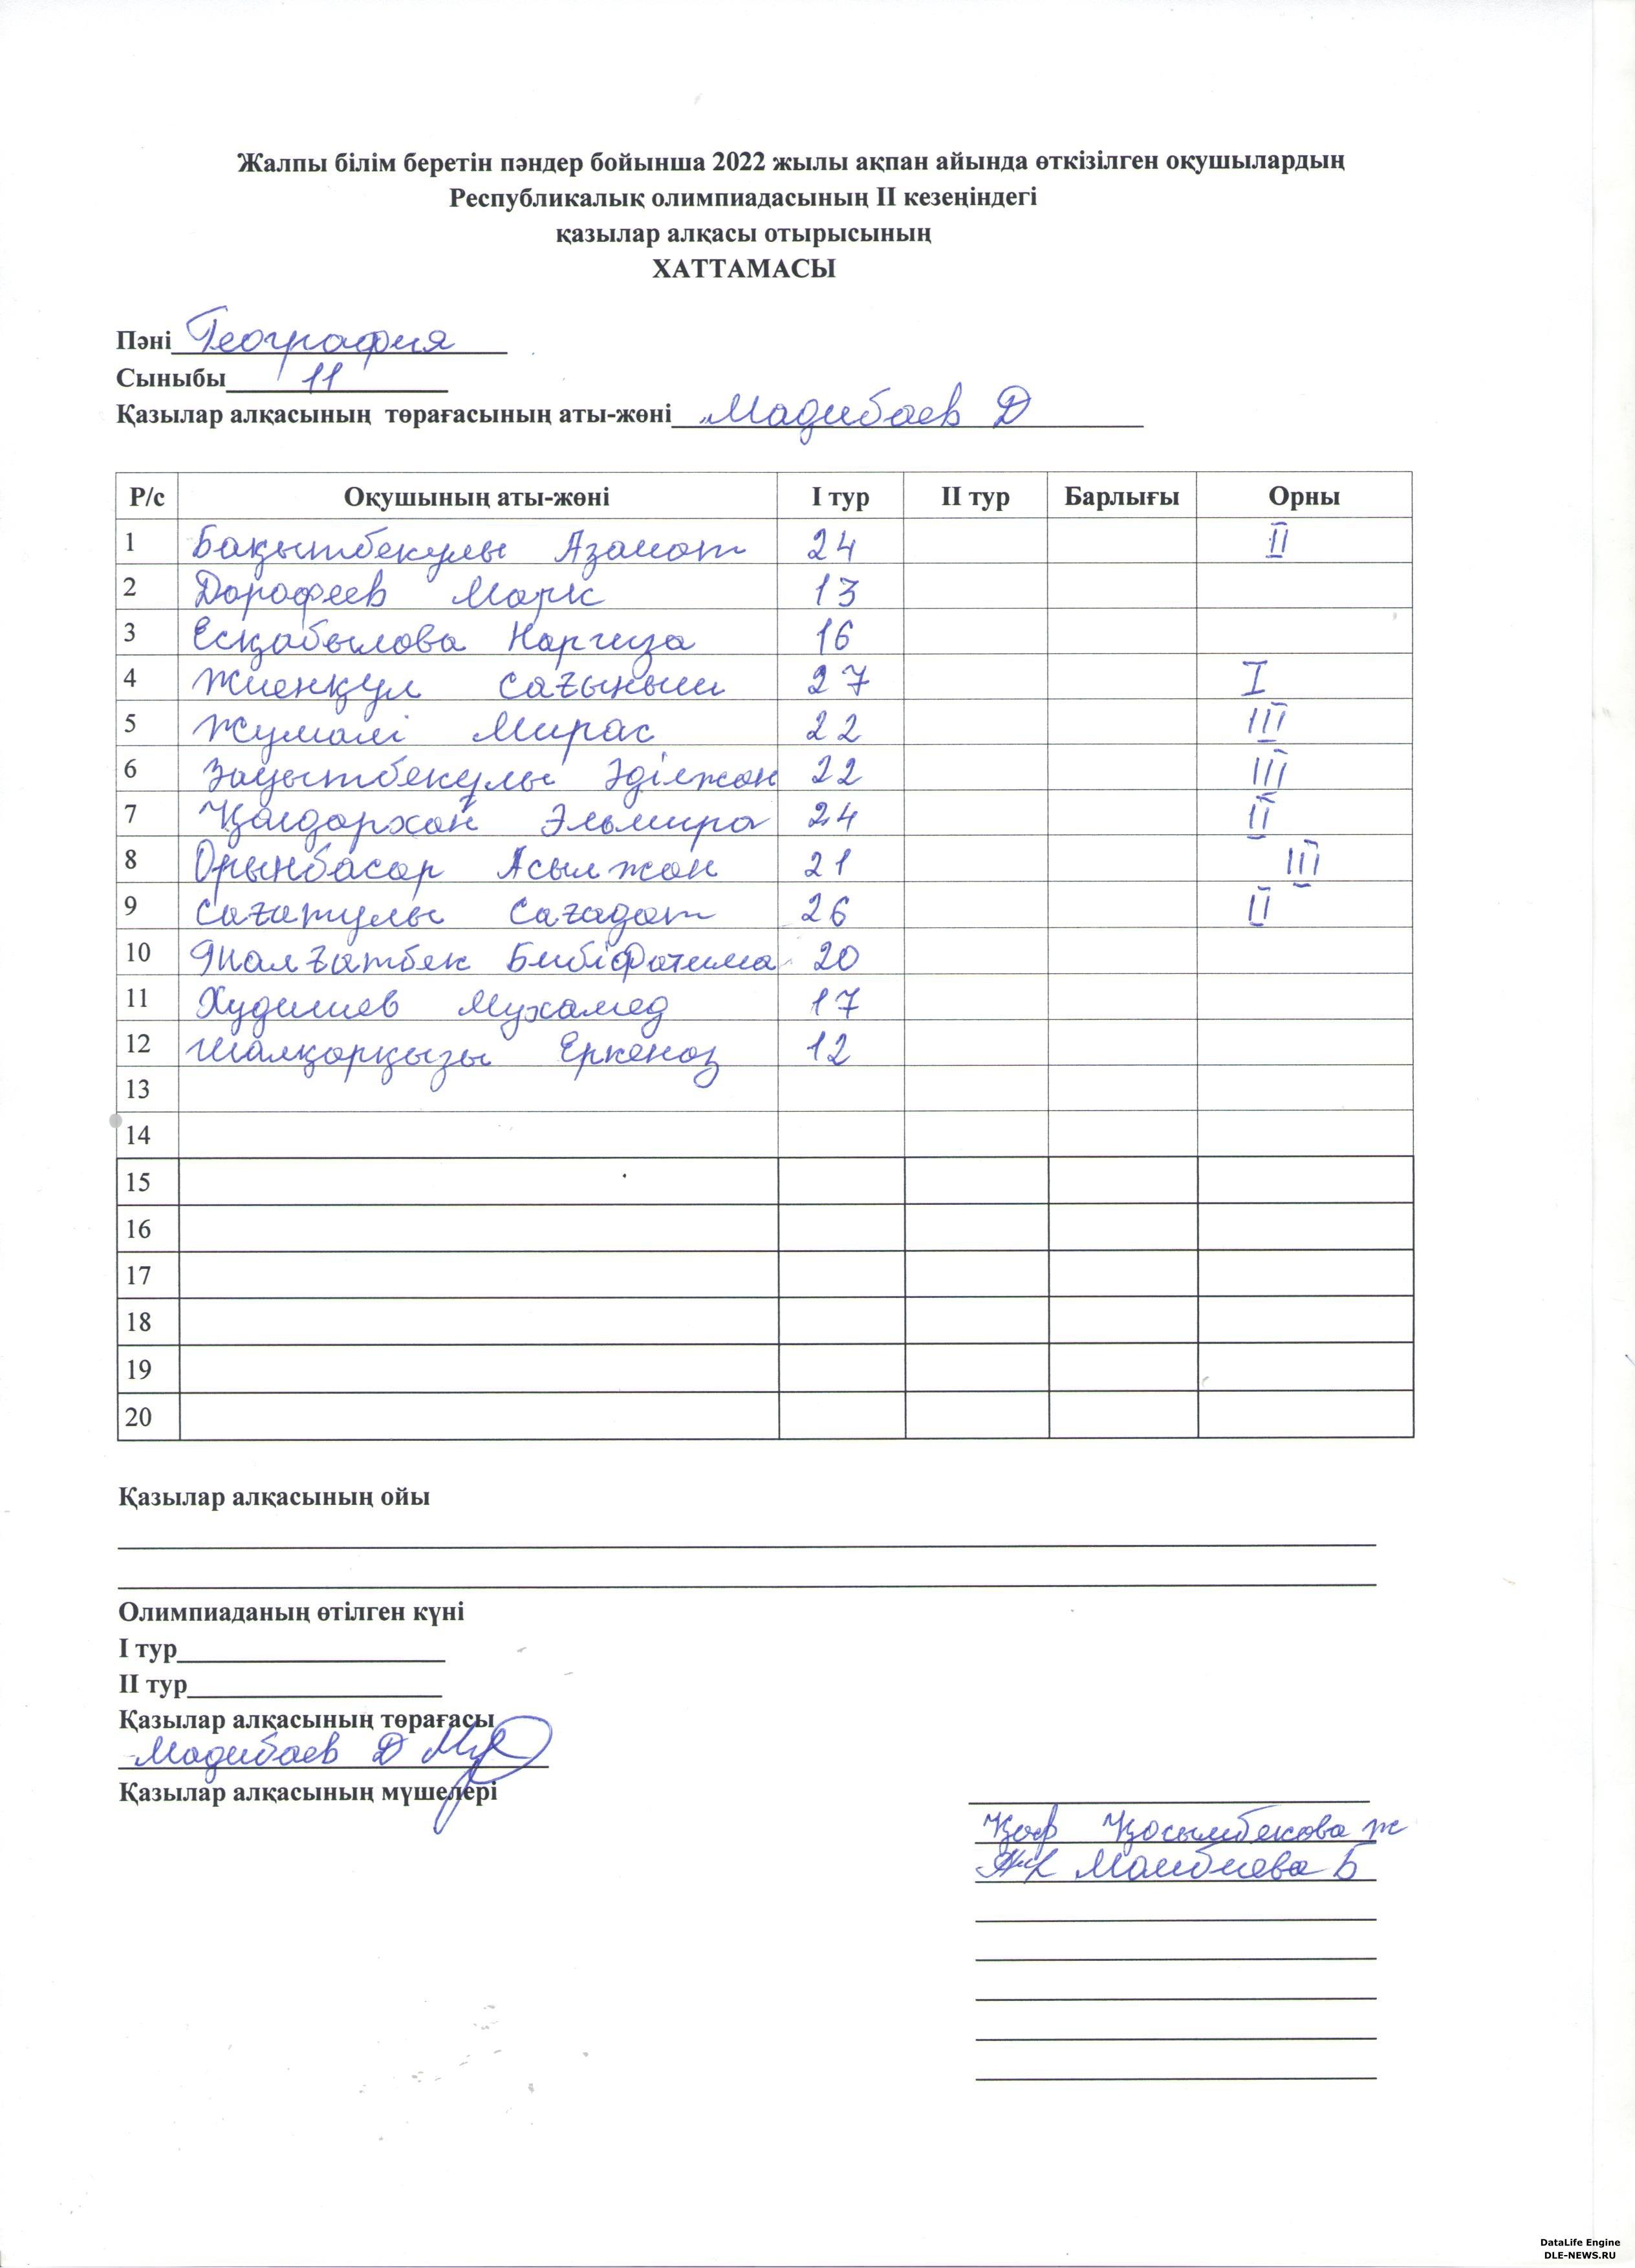 Жалпы білім беретін пәндер бойынша 2022 жылы ақпан айында өткізілген оқушылардың
Республикалық олимпиадасының II кезеңіндегі
қазылар алқасы отырысының
ХАТТАМАСЫ
Пәні География
Сыныбы 11
Қазылар алқасының төрағасының аты-жөні Мадибаев Д
Р/с Оқушының аты-жөні I тур II тур Барлығы Орны
1 Бақытбекұлы Азамат 24 II
2 Дорофеев Марк 13
3 Есқабылова Наргиза 16
4 Жиенқул Сағыныш 27 I
5 Жумалі Мирас 22 III
6 Зауытбекулы Әділжан 22 III
7 Қалдархан Эльмира 24 II
8 Орынбасар Асылжан 21 III
9 Сағатулы Сағадат 26 II
10 Жалғатбек Бибіфатима 20
11 Мухамед 17
12 Шалқарқызы Еркеназ 12
13
14
15
16
17
18
19
20
Қазылар алқасының ойы
Олимпиаданың өтілген күні
I тур
II тур
Қазылар алқасының төрағасы
Мадибаев Д
Қазылар алқасының мүшелері
Қосымбекова Ж
Б
DataLife Engine
DLE-NEWS.RU